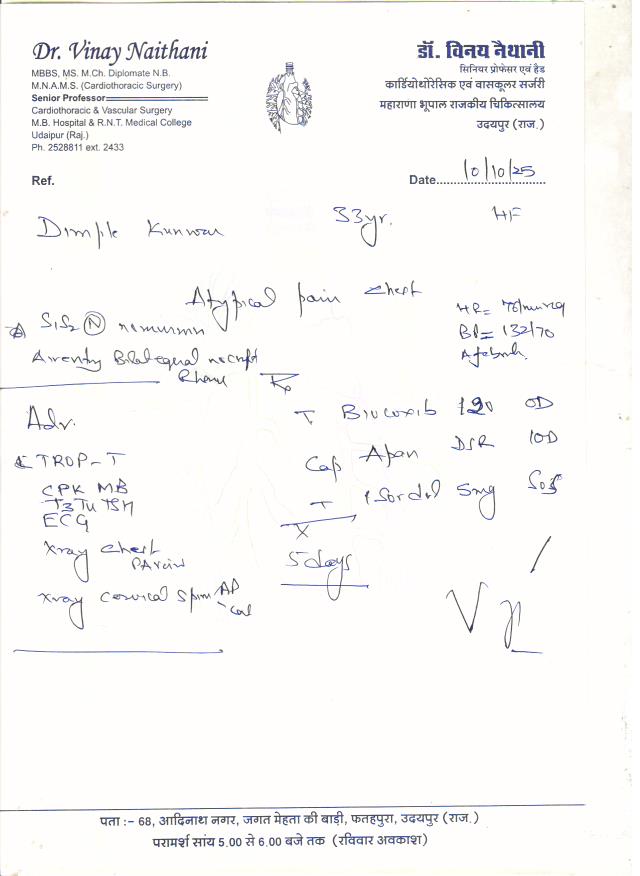 Dr. Vinay Naithani
MBBS, MS. M.Ch. Diplomate N.B.
M.N.A.M.S. (Cardiothoracic Surgery)
Senior Professor
Cardiothoracic & Vascular Surgery
M.B. Hospital & R.N.T. Medical College
Udaipur (Raj.)
Ph. 2528811 ext. 2433
डॉ. विनय नैथानी
सिनियर प्रोफेसर एवं हैड
कार्डियोथोरेसिक एवं वासकूलर सर्जरी
महाराणा भूपाल राजकीय चिकित्सालय
उदयपुर (राज.)
Ref.
Date 10/10/25
Dimple Kunwar 33yr.
Atypical pain chest
S1S2 (N) no murmur
HR= 76/min
BP= 132/70
Bilateral
Adv.
TROP-T
CPK MB
T3 T4 TSH
ECG
Xray chest
PA view
Xray cervical spine AP
T 120 OD
Cap DSR 1OD
T Isordil 5mg SOS
X
5 days
पता :- 68, आदिनाथ नगर, जगत मेहता की बाड़ी, फतहपुरा, उदयपुर (राज.)
परामर्श सांय 5.00 से 6.00 बजे तक (रविवार अवकाश)